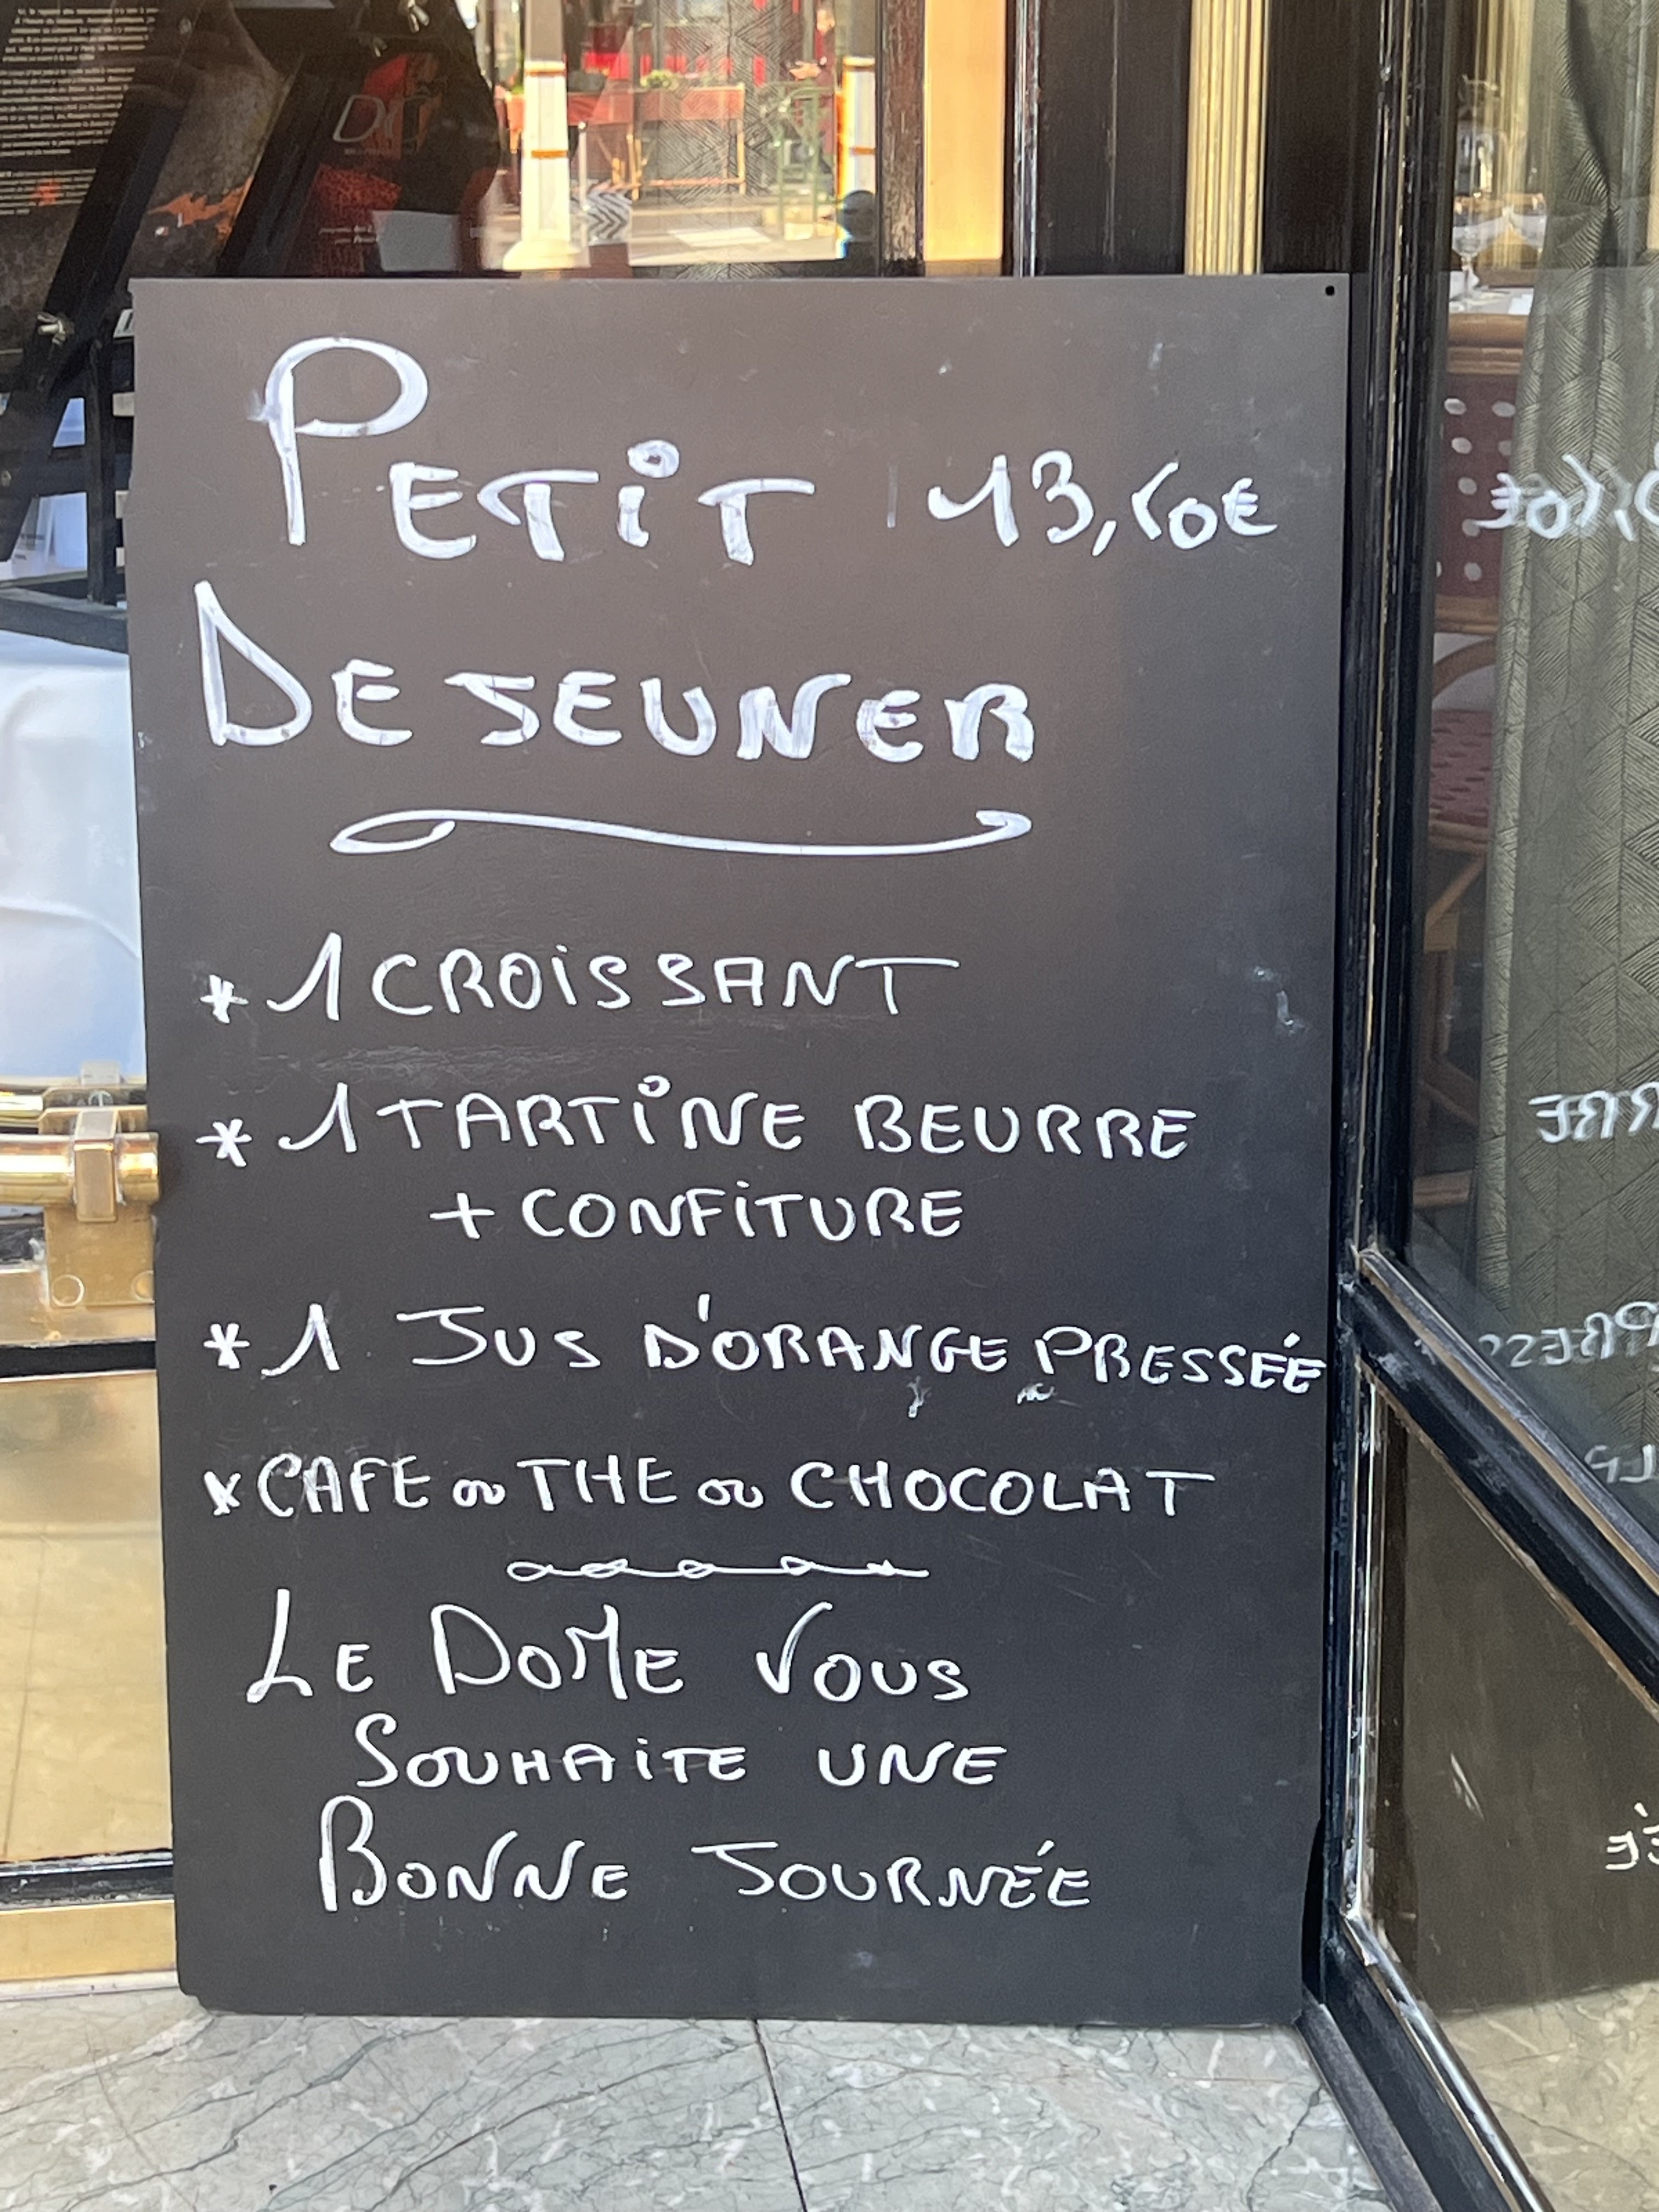 PETIT 13,50€
DEJEUNER
* 1 CROISSANT
* 1 TARTINE BEURRE
+ CONFITURE
* 1 JUS D'ORANGE PRESSÉE
* CAFE ou THE ou CHOCOLAT
LE DOME VOUS
SOUHAITE UNE
BONNE JOURNÉE